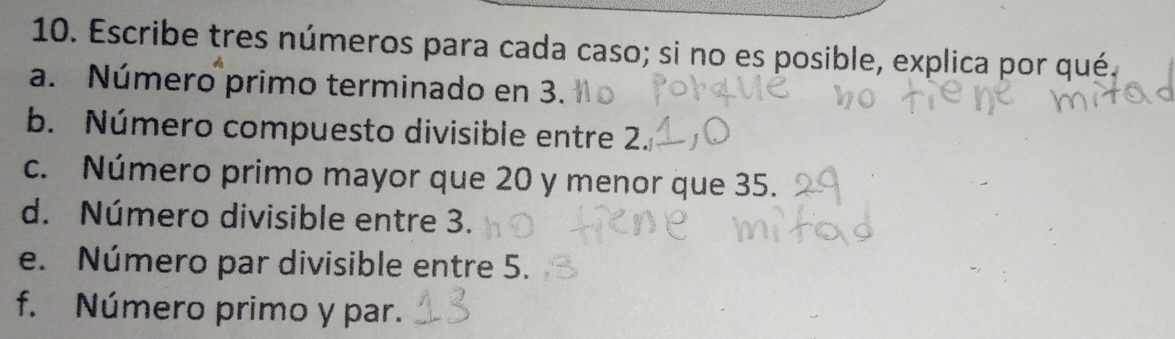 10. Escribe tres números para cada caso; si no es posible, explica por qué.
a. Número primo terminado en 3. no porque no tiene mitad
b. Número compuesto divisible entre 2. 1,0
c. Número primo mayor que 20 y menor que 35. 29
d. Número divisible entre 3. no tiene mitad
e. Número par divisible entre 5. 3
f. Número primo y par. 13